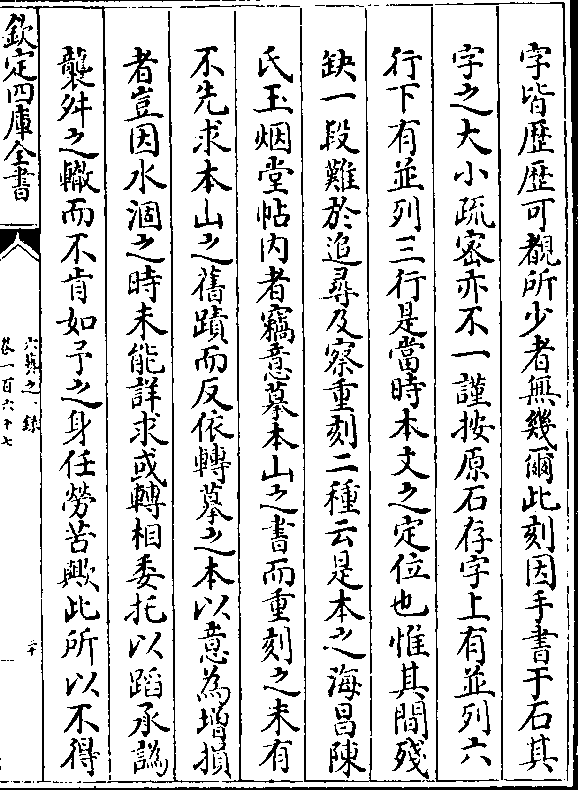 字皆歷歷可覩所少者無幾爾此刻因手書于石其
字之大小疏密亦不一謹按原石存字上有並列六
行下有並列三行是當時本文之定位也惟其間殘
缺一段難於追尋及察重刻二種云是本之海昌陳
氏玉烟堂帖内者竊意摹本山之書而重刻之未有
不先求本山之舊蹟而反依轉摹之本以意為增損
者豈因水涸之時未能詳求或轉相委托以蹈承譌
襲舛之轍而不肯如予之身任勞苦歟此所以不得
欽定四庫全書
六藝之一錄
卷一百六十七